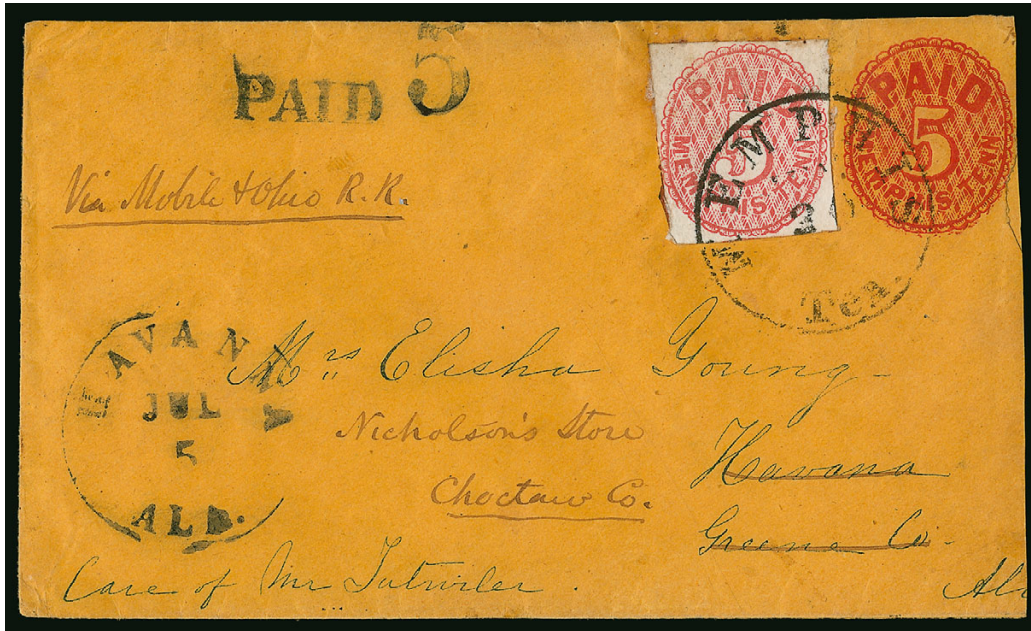 PAID 5
PAID
5
MEMPHIS TENN
PAID
5
MEMPHIS TENN
MEMPHIS
Ten.
Via Mobile & Ohio R.R.
HAVANNA
JUL
5
ALA.
Mrs Elisha Young
Nicholson's Store
Choctaw Co.
Havana
Greene Co.
Care of Mr Tutwiler.